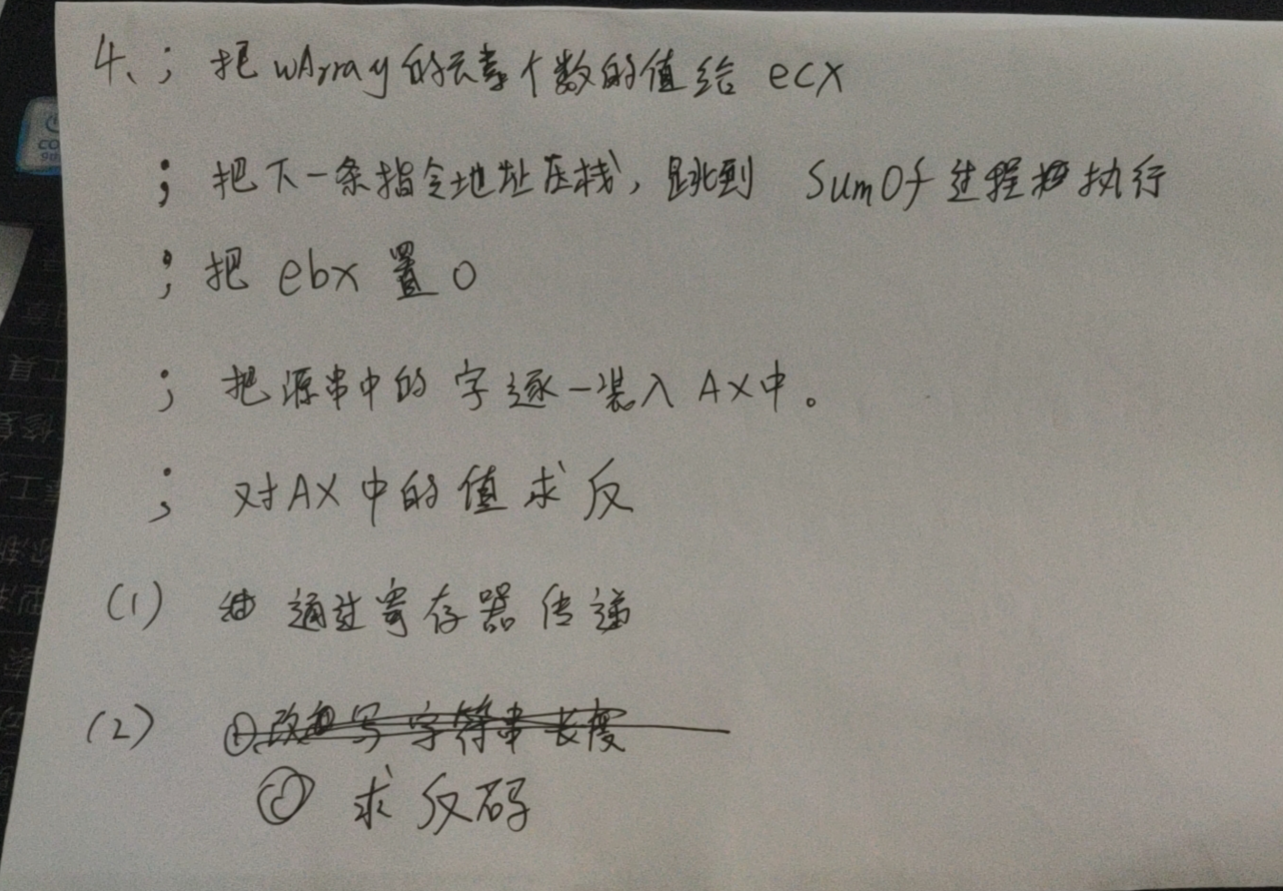 4、; 把 wArray 的元素个数的值给 ecx
; 把下一条指令地址压栈, 跳到 SumOf 过程执行
; 把 ebx 置 0
; 把源串中的字逐一装入 AX中。
; 对AX中的值求反
(1) 通过寄存器传递
(2) ①改写字符串长度
求反码